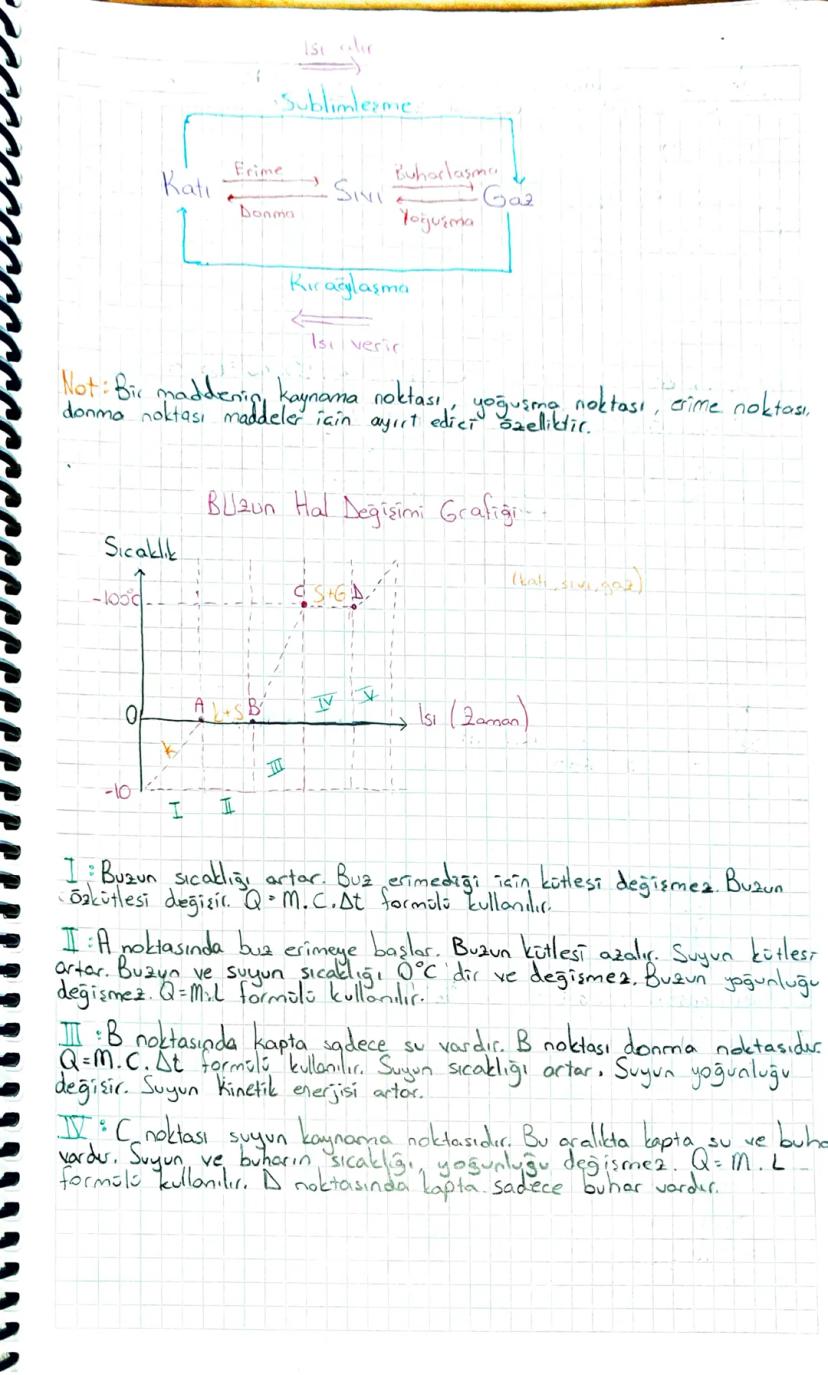 Isı alır
Süblimleşme
Erime
Buharlaşma
Katı
Sıvı
Gaz
Donma
Yoğuşma
Kırağılaşma
Isı verir
Not: Bir maddenin kaynama noktası, yoğuşma noktası, erime noktası,
donma noktası maddeler için ayırt edici özelliktir.
BUzun Hal Değişimi Grafiği
Sıcaklık
(katı, sıvı, gaz)
-100°C
C S+G D
0
A
+S B
IV
V
Isı (Zaman)
K
III
-10
I
II
I: Buzun sıcaklığı artar. Buz erimediği için kütlesi değişmez. Buzun
özkütlesi değişir. Q=M.C.Δt formülü kullanılır.
II: A noktasında buz erimeye başlar. Buzun kütlesi azalır. Suyun kütlesi
artar. Buzun ve suyun sıcaklığı 0°C'dir ve değişmez. Buzun yoğunluğu
değişmez. Q=M.L formülü kullanılır.
III: B noktasında kapta sadece su vardır. B noktası donma noktasıdır.
Q=M.C.Δt formülü kullanılır. Suyun sıcaklığı artar. Suyun yoğunluğu
değişir. Suyun Kinetik enerjisi artar.
IV: C noktası suyun kaynama noktasıdır. Bu aralıkta kapta su ve buha
vardır. Suyun ve buharın sıcaklığı, yoğunluğu değişmez. Q=M.L
formülü kullanılır. D noktasında kapta sadece buhar vardır.